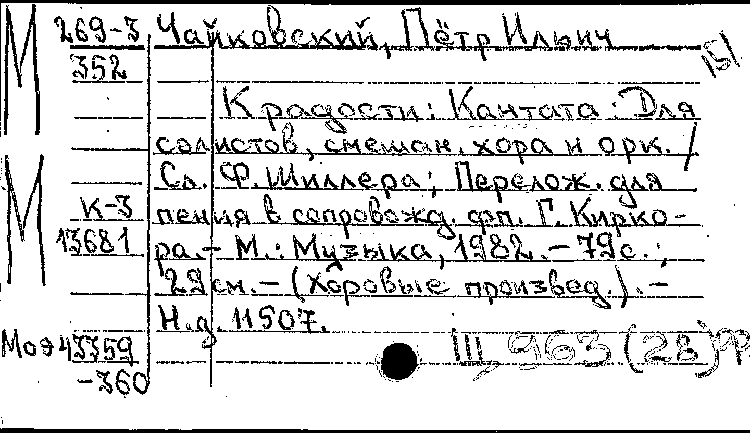 М 269-3 Чайковский, Пётр Ильич
352
К радости: Кантата: Для
солистов, смешан. хора и орк. /
М Сл. Ф. Шиллера; Перелож. для
К-3 пения в сопровожд. фп. Г. Кирко-
13681 ра.- М.: Музыка, 1982.- 79с.;
29см.- (Хоровые произвед.).-
Н.д. 11507.
43359 III, 963 (2В)
-360